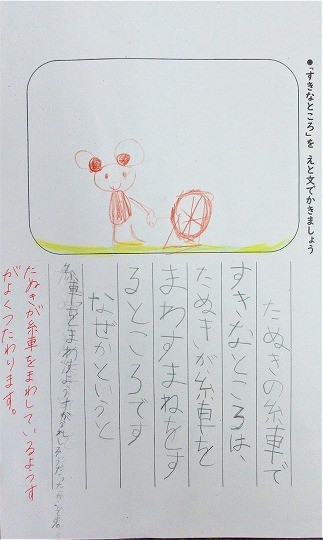 ●「すきなところ」を えと文でかきましょう
たぬきの糸車で
すきなところは、
たぬきが糸車を
まわすまねをす
るところです
なぜかというと
糸車をまわすようすが
たぬきが糸車をまわしているようす
がよくつたわります。